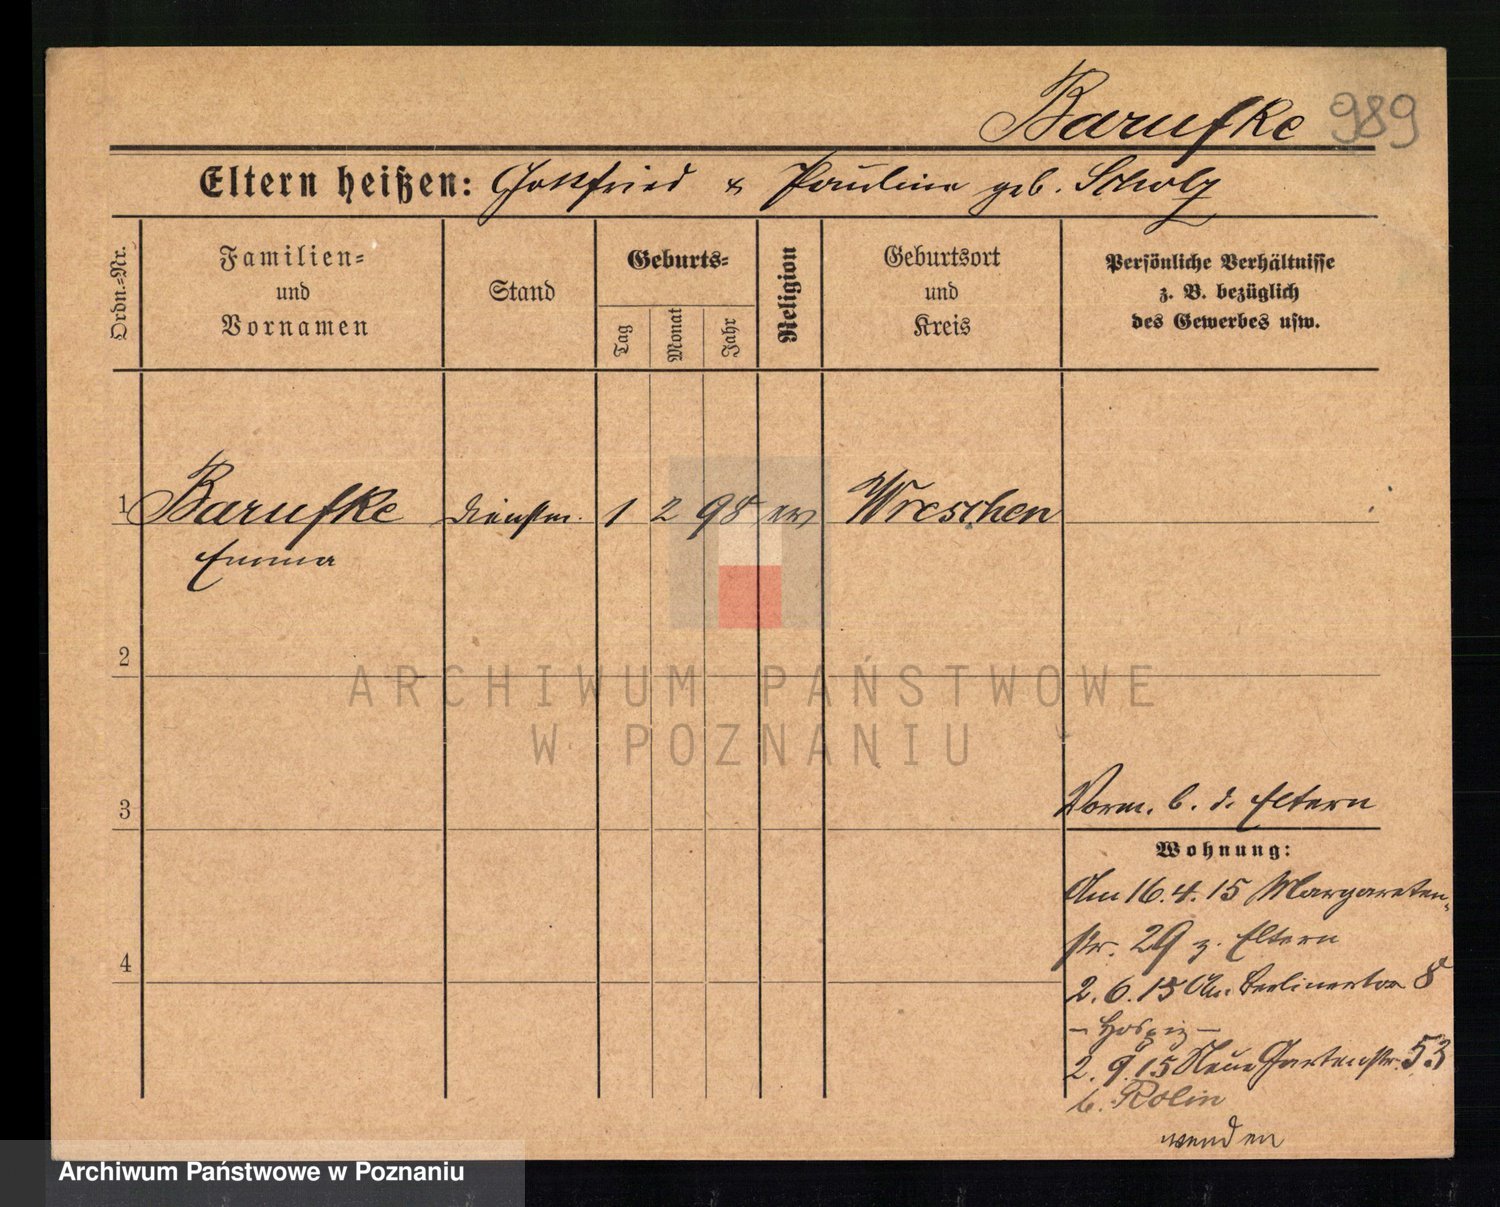 Barufke 989
Eltern heißen: Gottfried & Paulina geb. Scholz
Ordn.=Nr.
Familien=
und
Vornamen
Stand
Geburts=
Tag
Monat
Jahr
Religion
Geburtsort
und
Kreis
Persönliche Verhältnisse
z. B. bezüglich
des Gewerbes usw.
1 Barufke Dienstm. 1 2 98 ev Wreschen
Emma
2
3
4
Vorm. b. d. Eltern
Wohnung:
Am 16.4.15 Margareten-
str. 29 z. Eltern
2.6.15 Am Berlinertor 8
- Hospiz -
2.9.15 Neue Gartenstr. 53
b. Rolin
wenden
ARCHIWUM PAŃSTWOWE
W POZNANIU
Archiwum Państwowe w Poznaniu